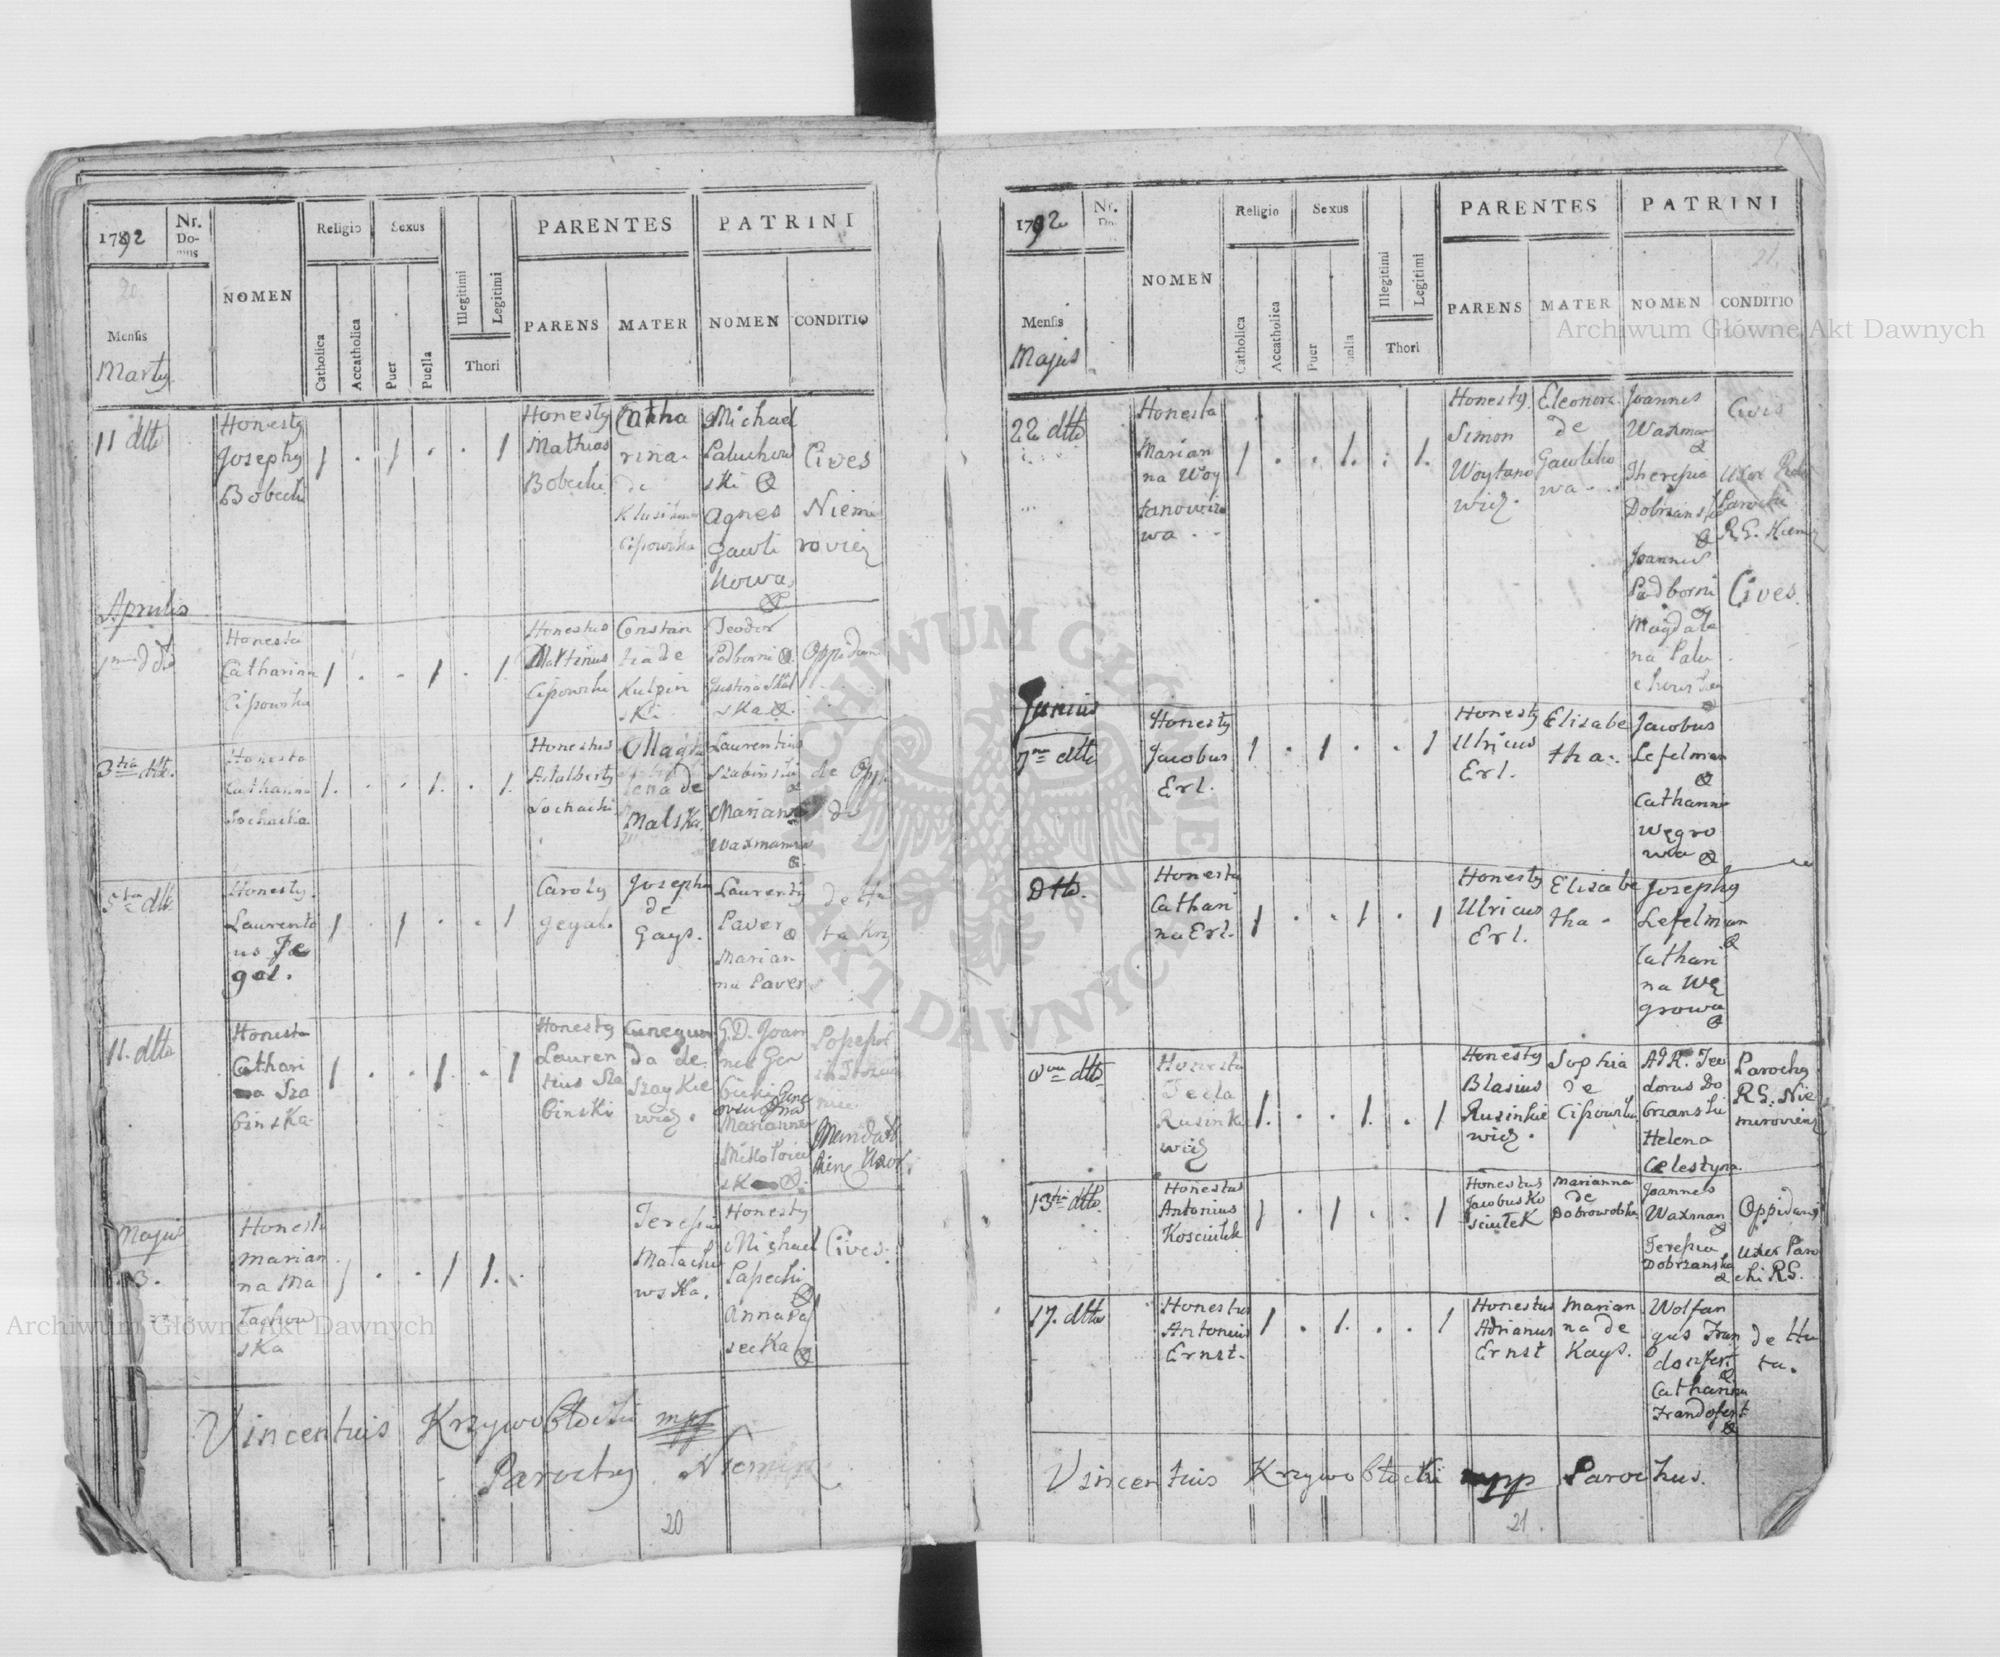 1792
Nr.
Do-
mus
NOMEN
Religio
Sexus
Illegitimi
Legitimi
PARENTES
PATRINI
20
Mensis
Catholica
Accatholica
Puer
Puella
Thori
PARENS
MATER
NOMEN
CONDITIO
11 dtto
Honesty
Josephy
Bobecki
1 . 1 . . 1
Honesty
Mathias
Bobecki
Catha
rina
de
Michael
Paluchow
ski
Agnes
Gawli
kowa
Cives
Niemi
roviez
Aprilis
Honesta
Catharina
Cipowska
1 . . 1 . 1
Honestus
Martinus
Cipowski
Constan
tia de
Kulpin
ski
Teodor
Podborni
ska
3tia dtto
Honesta
Catharina
Sochacka
1 . . 1 . 1
Honestus
Adalberty
Sochacki
lena de
Malska
Laurentius
Szabinski
Mariana
Waxmanowa
5ta dtto
Honesty
Laurenti
us Je
gal.
1 . 1 . . 1
Caroly
gegal.
Josepha
de
Gays.
Laurenty
Paver
Marian
na Paver
de Hu
ta
11. dtto
Honesta
Cathari
na Sza
binska
1 . . 1 . 1
Honesty
Lauren
tius Sza
binski
Cunegun
da de
Szaykie
wicz.
G.D. Joan
nes
Marianna
Majus
3.
Honesta
Marian
na Ma
tachow
ska
1 . . 1 1 .
Teresia
Matacho
wska.
Honesty
Michael
Papecki
Anna Pa
secka
Cives.
Vincentius Krzywobłocki mpp
Parochy
20
1792
Nr.
Do
NOMEN
Religio
Sexus
Illegitimi
Legitimi
PARENTES
PATRINI
21
Mensis
Majus
Catholica
Accatholica
Puer
Puella
Thori
PARENS
MATER
NOMEN
CONDITIO
22 dtto
Honesta
Marian
na Woy
tanowicz
wa
1 . . 1 . 1
Honesty
Simon
Woytano
wicz.
Eleonora
de
Gawliko
wa
Joannes
Waxman
Theresia
Dobrzanska
Joannes
Podborni
Magdale
na Palu
chowska
Civis
Uxor
Parochi
R.G.
Cives.
Junius
7ma dtto
Honesty
Jacobus
Erl.
1 . 1 . . 1
Honesty
Ulricus
Erl.
Elisabe
tha.
Jacobus
Lefelman
Catharina
Węgro
wa
Dtto.
Honesta
Cathari
na Erl.
1 . . 1 . 1
Honesty
Ulricus
Erl.
Elisabe
tha.
Josephy
Lefelman
Cathari
na Wę
growa
dtto
Honesta
Tecla
Rusinkie
wicz
1 . . 1 . 1
Honesty
Blasius
Rusinkie
wicz.
Sophia
de
Cipowska
Teo
dorus Do
brzanski
Helena
Celestyna
Parochy
R.G. Nie
miroviens
13tia dtto
Honestus
Antonius
Kosciułek
1 . 1 . . 1
Honestus
Jacobus Ko
sciułek
Marianna
de
Dobrowolska
Joannes
Waxman
Teresia
Dobrzanska
Oppidani
uxor Paro
chi R.G.
17. dtto
Honestus
Antonius
Ernst.
1 . 1 . . 1
Honestus
Adrianus
Ernst
Marian
na de
Kays.
Wolfan
gus Fran
dosfert
Catharina
Frandofert
de Hu
ta.
Vincentius Krzywobłocki mpp Parochus.
21.
Archiwum Główne Akt Dawnych
Archiwum Główne Akt Dawnych
ARCHIWUM GŁÓWNE AKT DAWNYCH